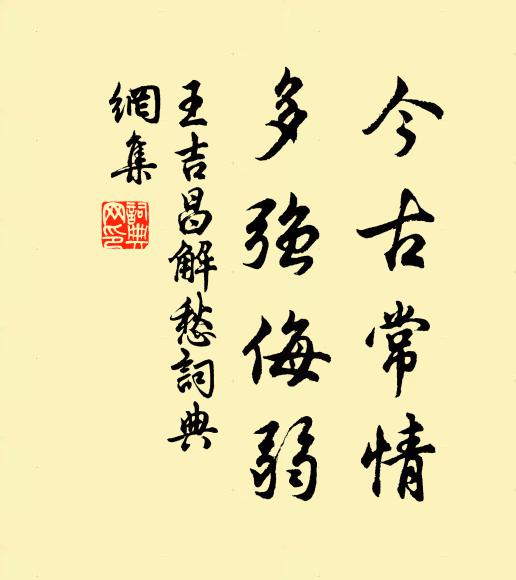 今古常情
多強侮弱
王吉昌解愁詞典
網集
詞典網印